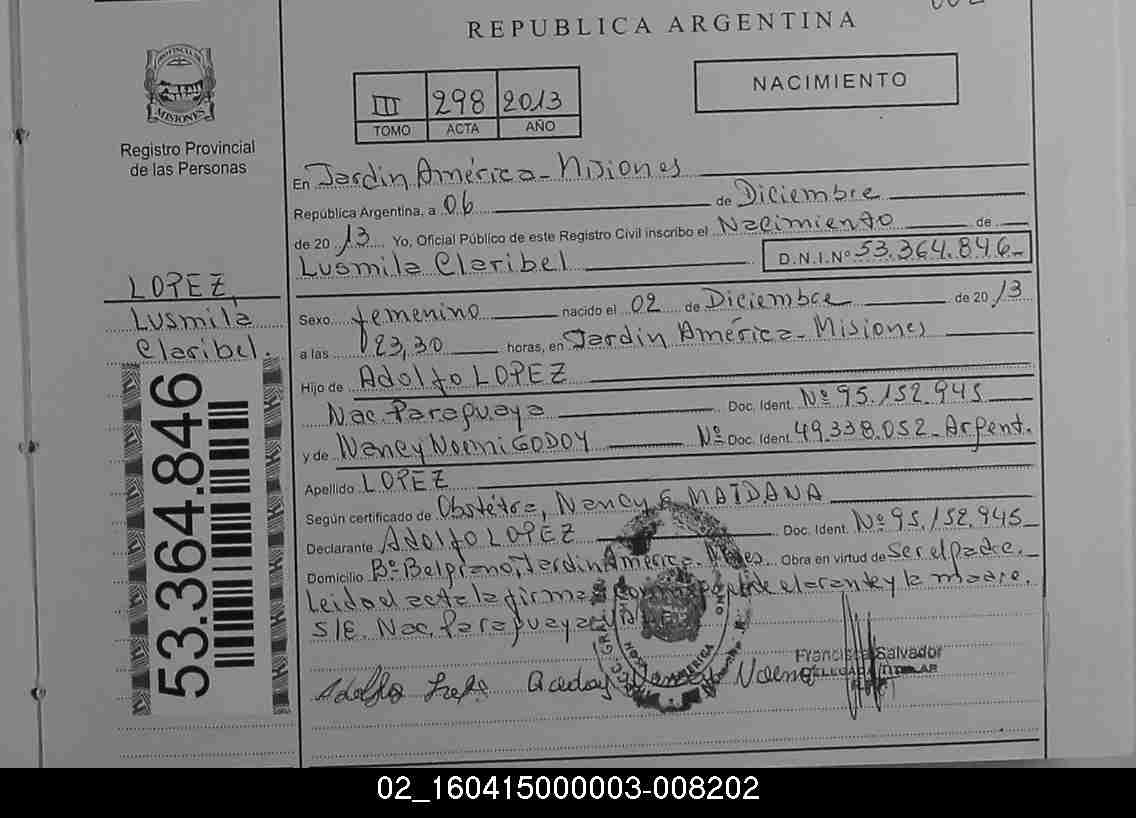 REPUBLICA ARGENTINA
PROVINCIA DE
MISIONES
Registro Provincial
de las Personas
III 298 2013
TOMO ACTA AÑO
NACIMIENTO
En Jardin América - Misiones
República Argentina, a 06 de Diciembre
de 2013 Yo, Oficial Público de este Registro Civil inscribo el Nacimiento de
Lusmila Claribel D.N.I.Nº 53.364.846-
LOPEZ,
Lusmila
Claribel.
53.364.846
Sexo femenino nacido el 02 de Diciembre de 2013
a las 23,30 horas, en Jardin América - Misiones
Hijo de Adolfo LOPEZ
Nac. Paraguaya Doc. Ident. Nº 95.152.945
y de Nancy Noemi GODOY Nº Doc. Ident. 49.338.052 - Argent.
Apellido LOPEZ
Según certificado de Obstétra, Nancy E. MAIDANA
Declarante Adolfo LOPEZ Doc. Ident. Nº 95.152.945-
Domicilio Bº Belgrano, Jardin América - Mnes. Obra en virtud de ser el padre.
Leida el acta la firma y la madre.
S/E. Nac. Paraguaya
Francisca Salvador
DELEGADA TITULAR
Adolfo Lopez Godoy Nancy Noemi
02_160415000003-008202